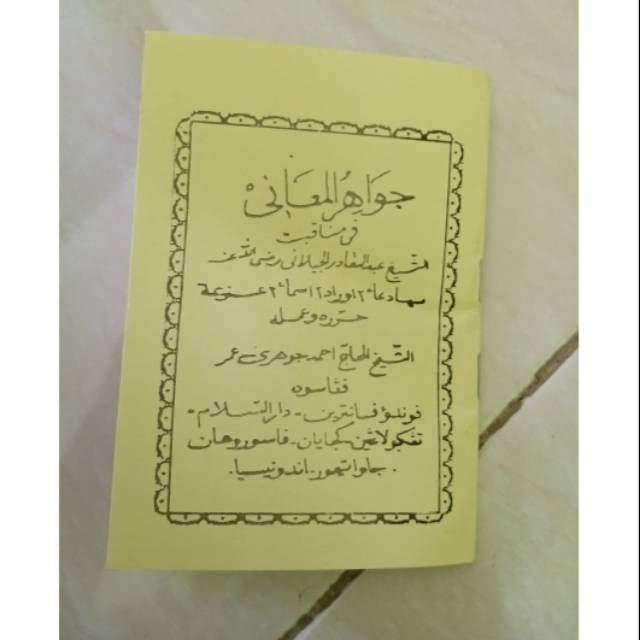 جَوَاهِرُ الْمَعَانِيْ
في مناقب
الشيخ عبد القادر الجيلاني رضي الله عنه
دعاء٢ اوراد٢ اسماء٢
حرره وعمله
الشيخ الحاج احمد جوهري عمر
ڤڠاسوه
ڤوندوق ڤسانترين - دار السلام -
كجايان - ڤاسوروهان
جاوا تيمور - اندونيسيا .